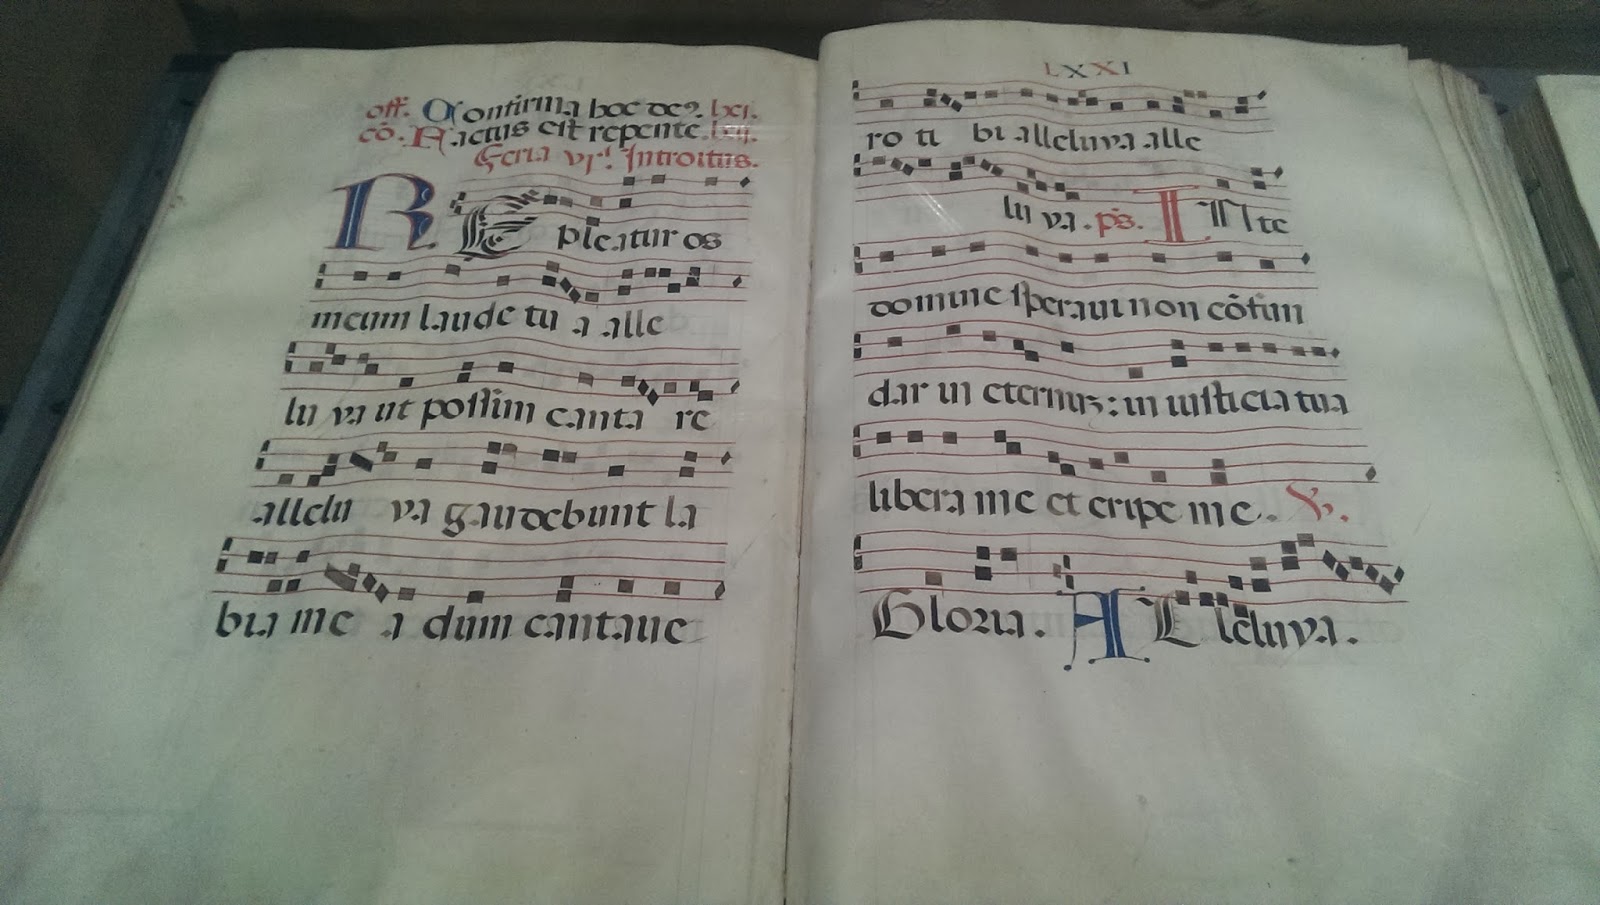 off. Confirma hoc de9. lxj.
cō. Factus est repente. lxij.
Feria vjᵃ. Introitus.
REpleatur os
meum laude tu a alle
lu ya ut possim canta re
allelu ya gaudebunt la
bia me a dum cantaue
LXXI
ro ti bi alleluya alle
lu ya. ps. IN te
domine speraui non cōfun
dar in eternu3: in iusticia tua
libera me et eripe me. V.
Gloria. ALleluya.